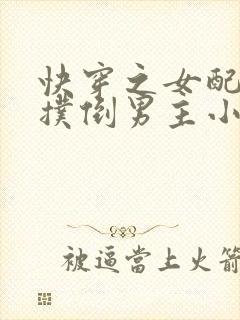 快穿之女配
撲倒男主小
被逼當上火箭